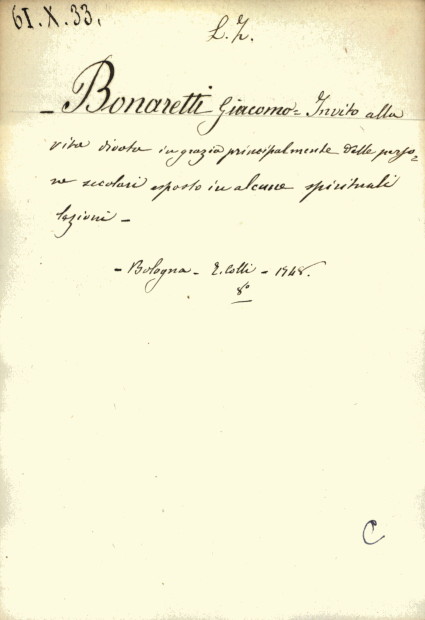 61.X.33.
L. Z.
- Bonaretti Giacomo = Invito alla
vita divota in grazia principalmente delle perso=
ne secolari esposto in alcune spirituali
lezioni -
- Bologna - E. Colli - 1748.
8°
C